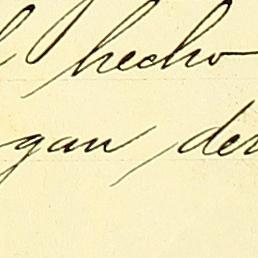 hecho
gan, der